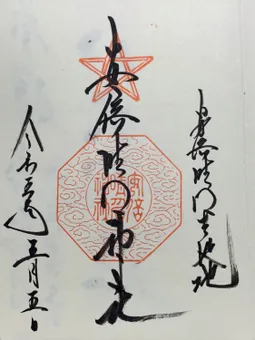 安倍晴明生誕地
安倍晴明神社
安倍
晴明
神社
令和年五月五日